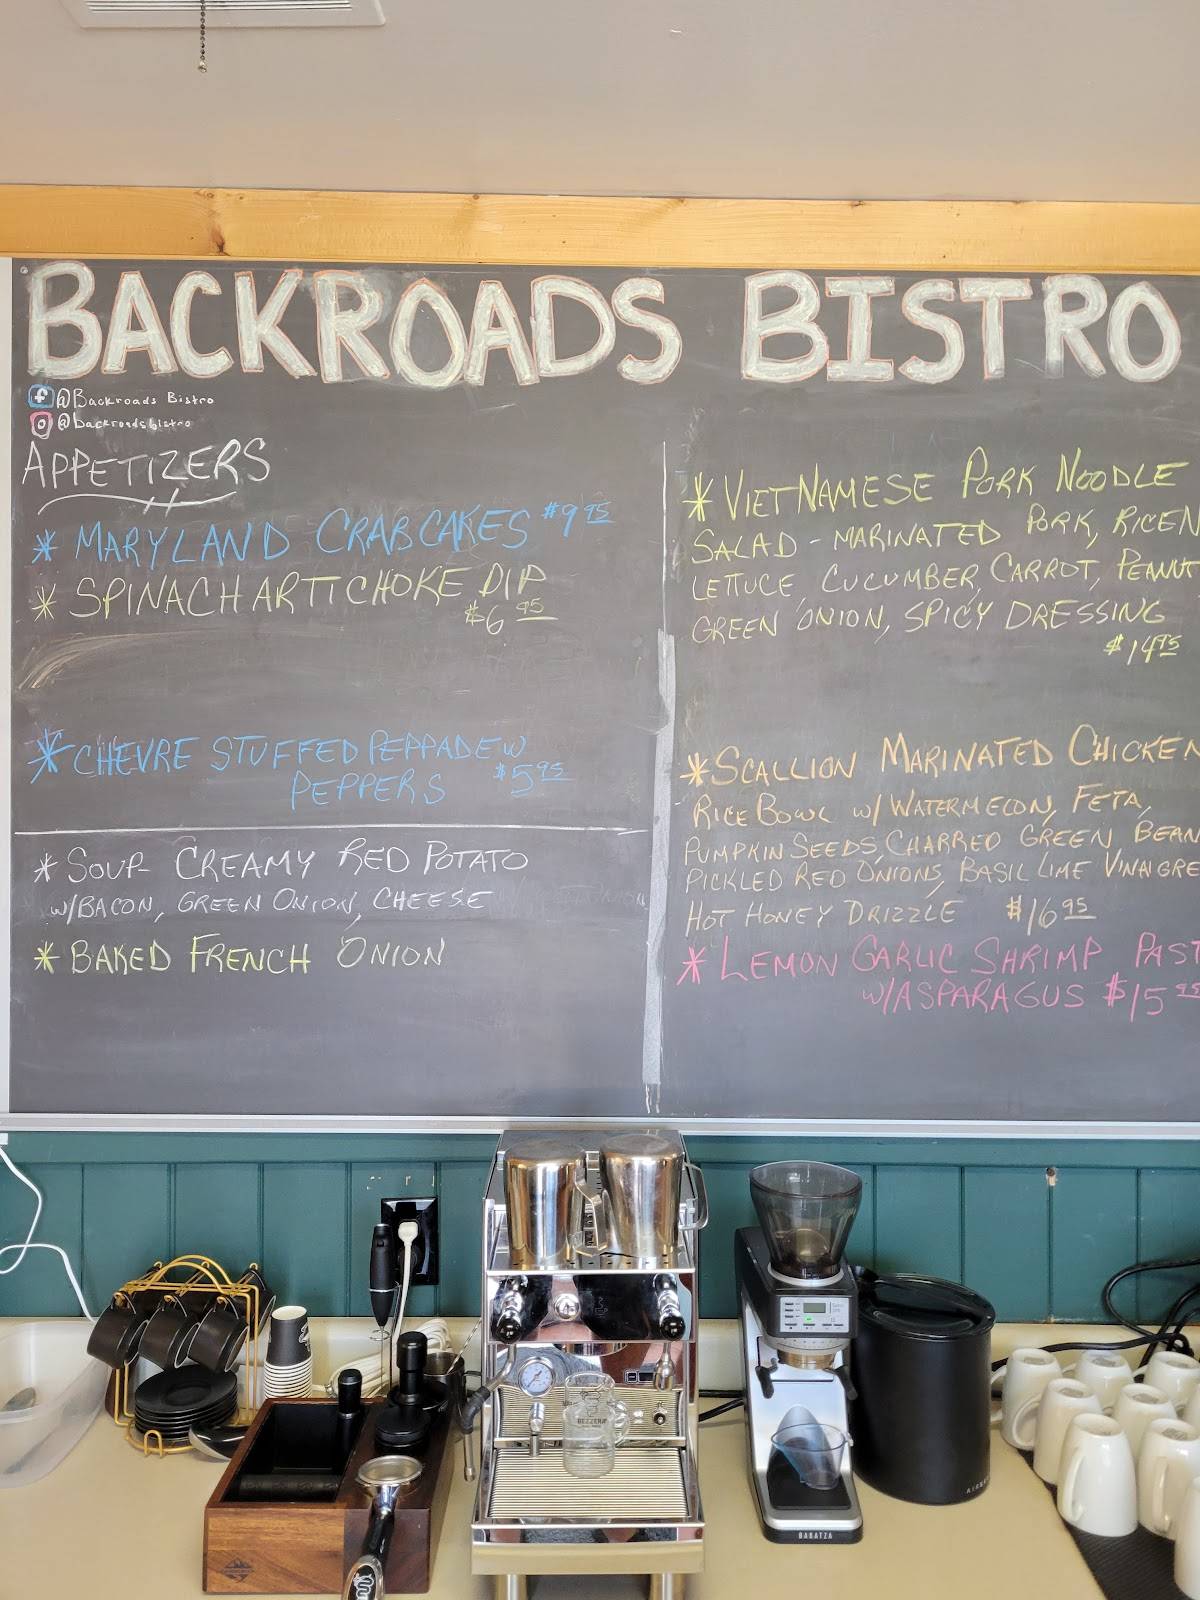 BACKROADS BISTRO
@Backroads Bistro
@backroadsbistro
APPETIZERS
* MARYLAND CRABCAKES $9 95
* SPINACH ARTICHOKE DIP
$6 95
* CHEVRE STUFFED PEPPADEW
PEPPERS $5 95
* SOUP- CREAMY RED POTATO
W/BACON, GREEN ONION, CHEESE
* BAKED FRENCH ONION
* VIETNAMESE PORK NOODLE
SALAD - MARINATED PORK, RICEN
LETTUCE, CUCUMBER, CARROT, PEANUT
GREEN ONION, SPICY DRESSING
$14 95
* SCALLION MARINATED CHICKEN
RICE BOWL W/ WATERMELON, FETA,
PUMPKIN SEEDS, CHARRED GREEN BEAN
PICKLED RED ONIONS, BASIL LIME VINAIGRE
HOT HONEY DRIZZLE $16 95
* LEMON GARLIC SHRIMP PAST
W/ASPARAGUS $15 95
BEZZERA
BARATZA